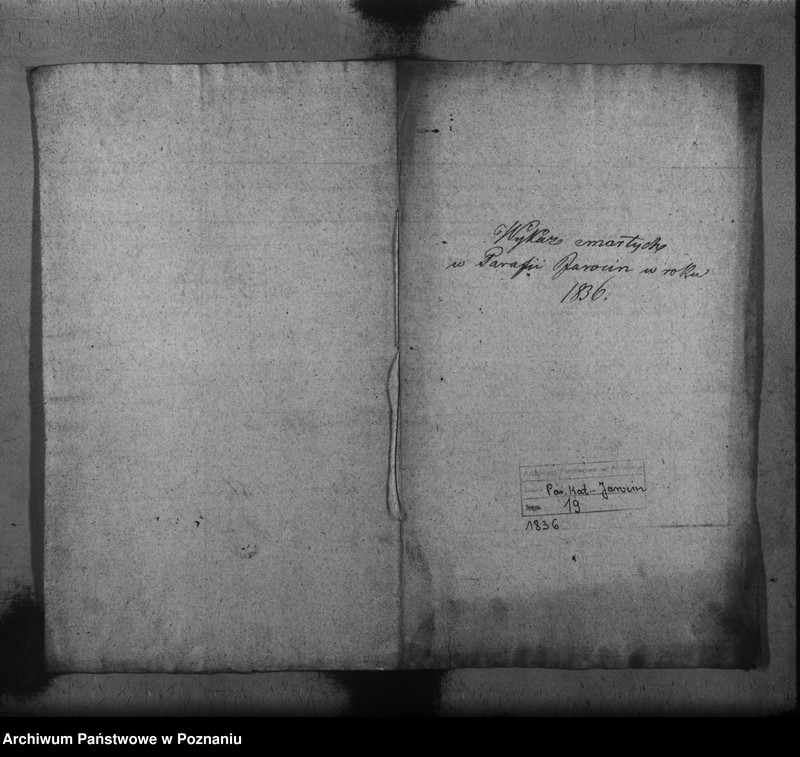 Wykaz zmarłych
w Parafii Jarocin w roku
1836.
Archiwum Państwowe w Poznaniu
Par. Kat. Jarocin
19
1836
Archiwum Państwowe w Poznaniu